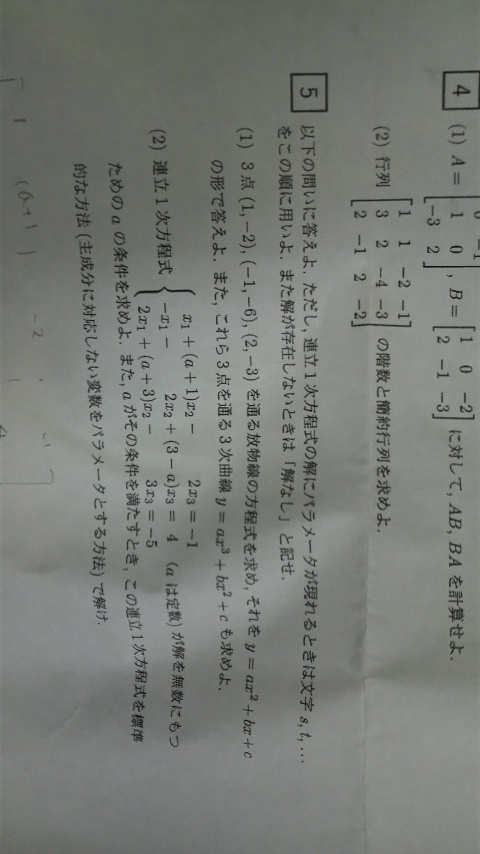 0 -1
4 (1) A = [ 1 0 ], B = [ 1 0 -2 ] に対して, AB, BA を計算せよ.
-3 2 2 -1 -3
1 1 -2 -1
(2) 行列 [ 3 2 -4 -3 ] の階数と簡約行列を求めよ.
2 -1 2 -2
5 以下の問いに答えよ. ただし, 連立1次方程式の解にパラメータが現れるときは文字 s, t, …
をこの順に用いよ. また解が存在しないときは「解なし」と記せ.
(1) 3点 (1, -2), (-1, -6), (2, -3) を通る放物線の方程式を求め, それを y = ax² + bx + c
の形で答えよ. また, これら3点を通る3次曲線 y = ax³ + bx² + c も求めよ.
x₁ + (a+1)x₂ - 2x₃ = -1
(2) 連立1次方程式 { -x₁ - 2x₂ + (3-a)x₃ = 4 (a は定数) が解を無数にもつ
2x₁ + (a+3)x₂ - 3x₃ = -5
ための a の条件を求めよ. また, a がその条件を満たすとき, この連立1次方程式を標準
的な方法 (主成分に対応しない変数をパラメータとする方法) で解け.